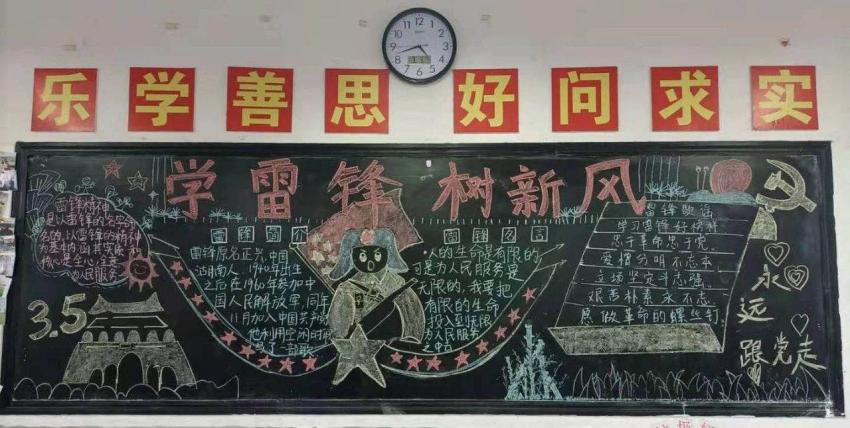 乐学善思好问求实
学雷锋 树新风
雷锋精神
是以雷锋的名字命
名的,以雷锋的精神
为基本内
核心
为人民服务
3.5
雷锋简介
雷锋原名正兴,中国
湖南人,1940年出生
之后在1960年参加中
国人民解放军,同年
11月加入中国共产党
他利用空闲时间
雷锋名言
人的生命是有限的
可是为人民服务是
无限的,我要把
有限的生命
投入到无限
为人民服务
之中去
雷锋歌谣
学习雷锋好榜样
忠于革命忠于党
爱憎分明不忘本
立场坚定斗志强
艰苦朴素永不忘
愿做革命的螺丝钉
永远跟党走